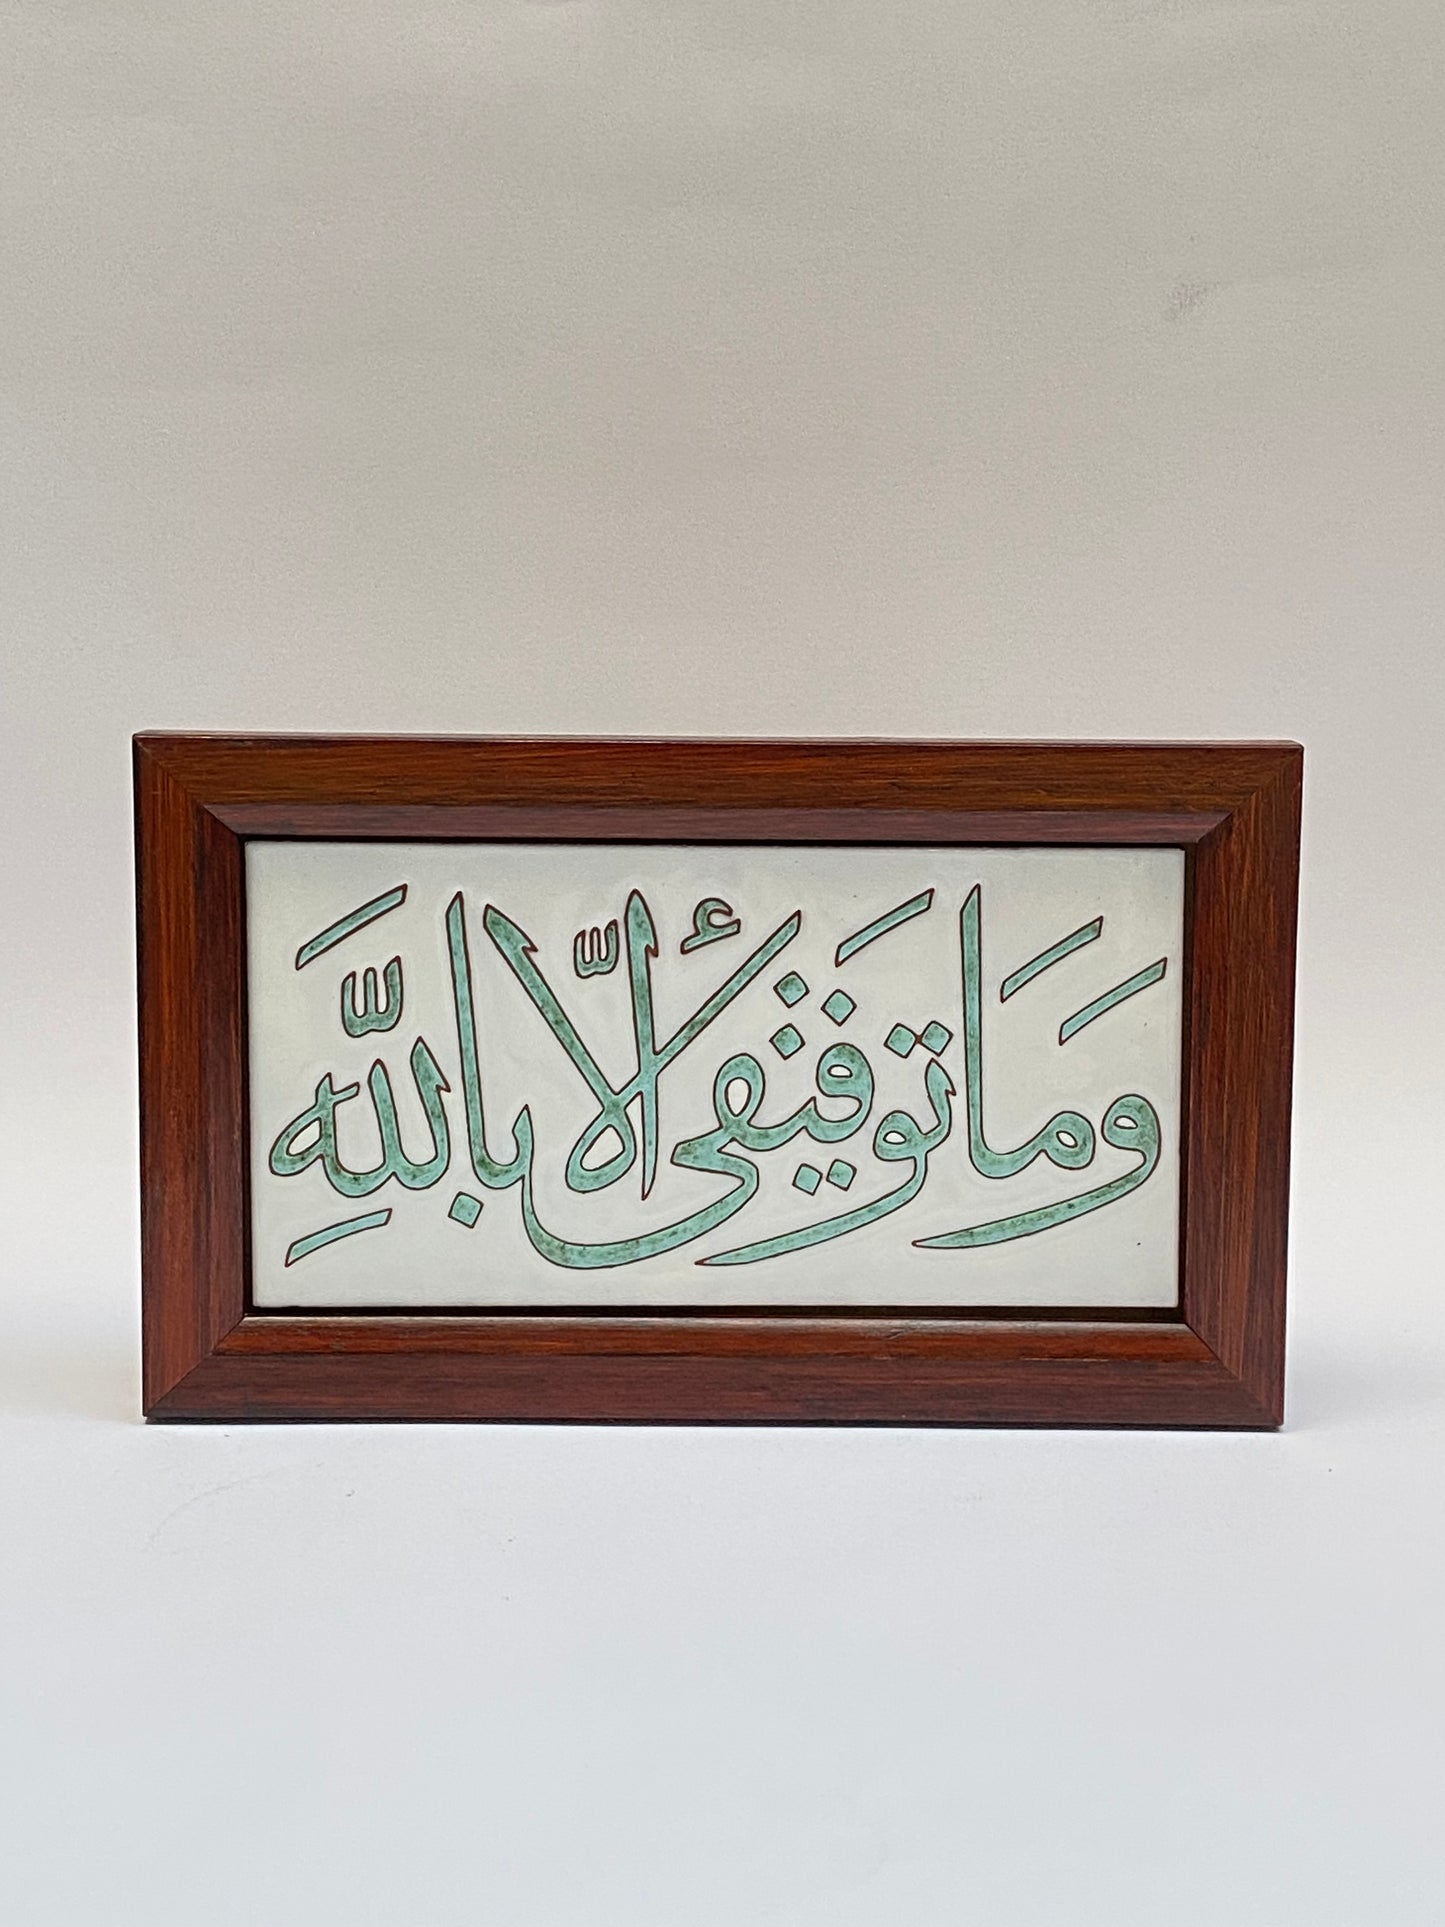 وَمَا تَوفيقى إلّا باللَّهِ